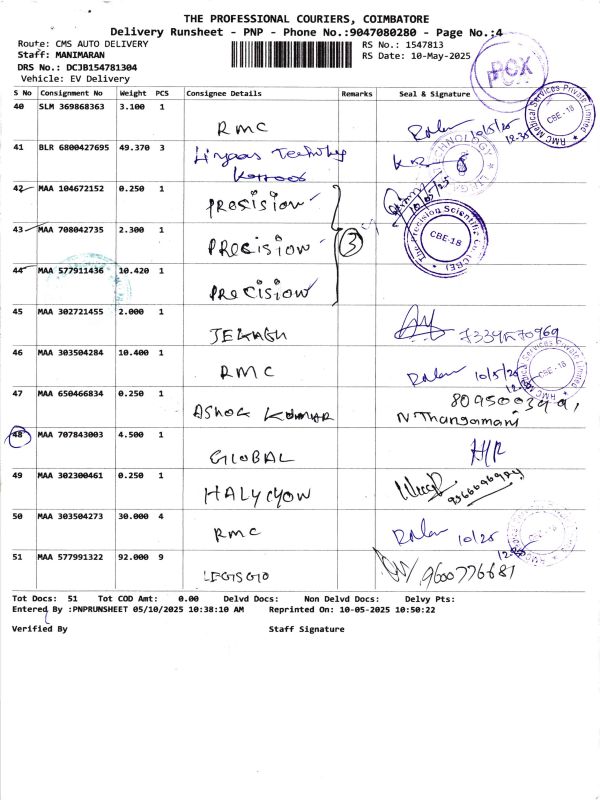 THE PROFESSIONAL COURIERS, COIMBATORE
Delivery Runsheet - PNP - Phone No.:9047080280 - Page No.:4
Route: CMS AUTO DELIVERY
Staff: MANIMARAN
DRS No.: DCJB154781304
Vehicle: EV Delivery
RS No.: 1547813
RS Date: 10-May-2025
PCX
S No Consignment No Weight PCS Consignee Details Remarks Seal & Signature
40 SLM 369868363 3.100 1 RMC 10/5/25 12.35
RMC Medical Services Private Limited CBE-18
41 BLR 6800427695 49.370 3
42 MAA 104672152 0.250 1 PRECISION
43 MAA 708042735 2.300 1 PRECISION 3
The Precision Scientific Co (CBE) CBE-18
44 MAA 577911436 10.420 1 PRECISION
45 MAA 302721455 2.000 1
46 MAA 303504284 10.400 1 RMC 10/5/25
RMC Medical Services Private Limited CBE-18
47 MAA 650466834 0.250 1 ASHOK KUMAR N Thangamani
48 MAA 707843003 4.500 1 GLOBAL
49 MAA 302300461 0.250 1 HALYCYON
50 MAA 303504273 30.000 4 RMC 10/25
51 MAA 577991322 92.000 9 9600776681
Tot Docs: 51 Tot COD Amt: 0.00 Delvd Docs: Non Delvd Docs: Delvy Pts:
Entered By :PNPRUNSHEET 05/10/2025 10:38:10 AM Reprinted On: 10-05-2025 10:50:22
Verified By Staff Signature